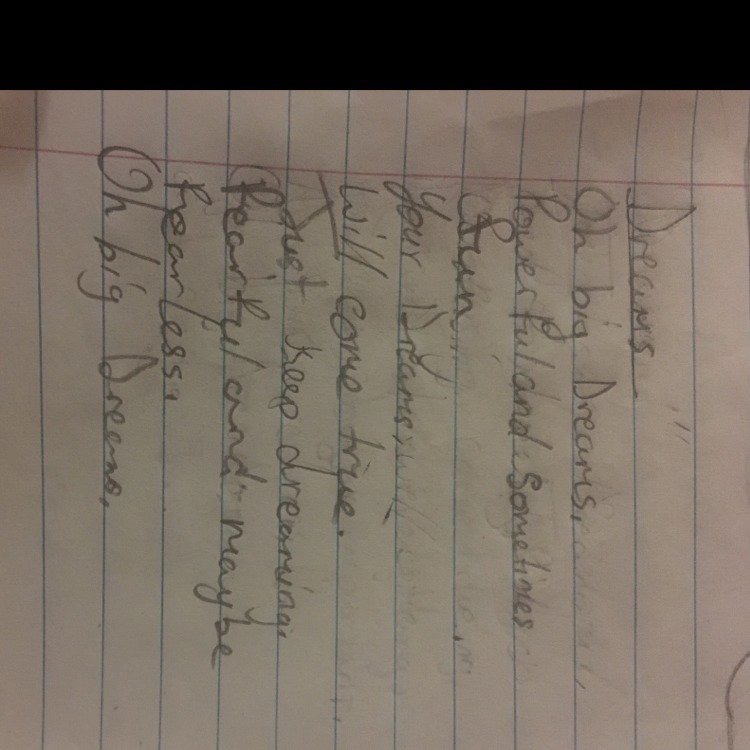 Dreams
Oh big Dreams,
Powerful and Sometimes
fun
Your Dreams,
Will come true.
Just keep dreaming.
fearful and maybe
fearless.
Oh big Dreams.